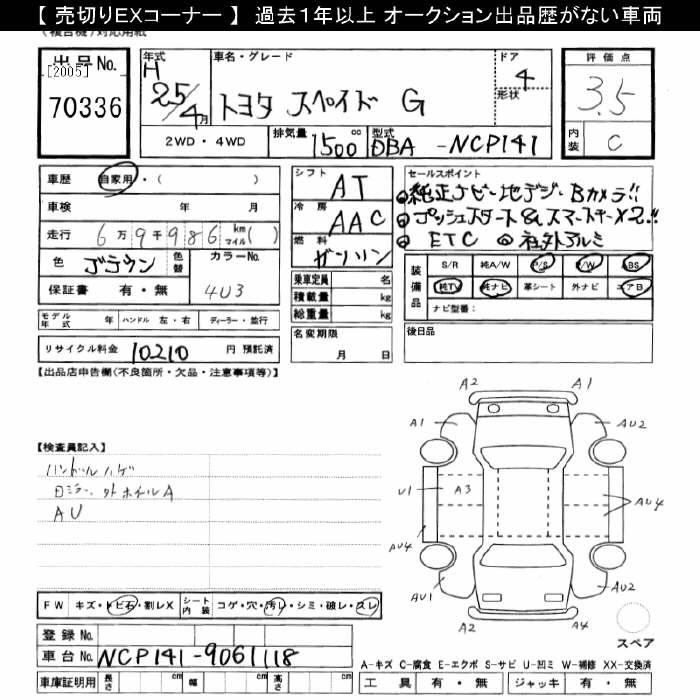 【 売切りEXコーナー 】 過去１年以上 オークション出品歴がない車両
(複合機)対応用紙
出品No.
[2005]
70336
年式
H
25/4月
車名・グレード
トヨタ スペイド G
ドア
4
形状
評価点
3.5
内装
C
2WD・4WD
排気量
1500 cc
型式
DBA-NCP141
車歴 自家用・( )
車検 年 月
走行 6万9千986 km マイル( )
色 ブラウン 色替
カラーNo.
4U3
保証書 有・無
モデル年式 年 ハンドル 左・右 ディーラー・並行
リサイクル料金 10210 円 預託済
シフト
AT
冷房
AAC
燃料
ガソリン
乗車定員 名
積載量 kg
総重量 kg
名変期限
月 日
セールスポイント
純正ナビ・地デジ・Bカメラ!!
プッシュスタート&スマートキーX2!!
ETC 社外アルミ
装備品
S/R 純A/W P/S P/W ABS
純TV 純ナビ 革シート 外ナビ エアB
ナビ型番:
後日品
【出品店申告欄(不良箇所・欠品・注意事項等)】
【検査員記入】
ハンドルハゲ
日ミラー、外ホイルA
AU
A2
A1
A1
AU2
U1
A3
AU4
AU4
AU1
AU2
A2
A4
スペア
FW キズ・トビ石・割レX シート内装 コゲ・穴・汚レ・シミ・破レ・スレ
登録No.
車台No. NCP141-9061118
車庫証明用 長さ cm 幅 cm 高さ cm
A-キズ C-腐食 E-エクボ S-サビ U-凹ミ W-補修 XX-交換済
工具 有・無 ジャッキ 有・無